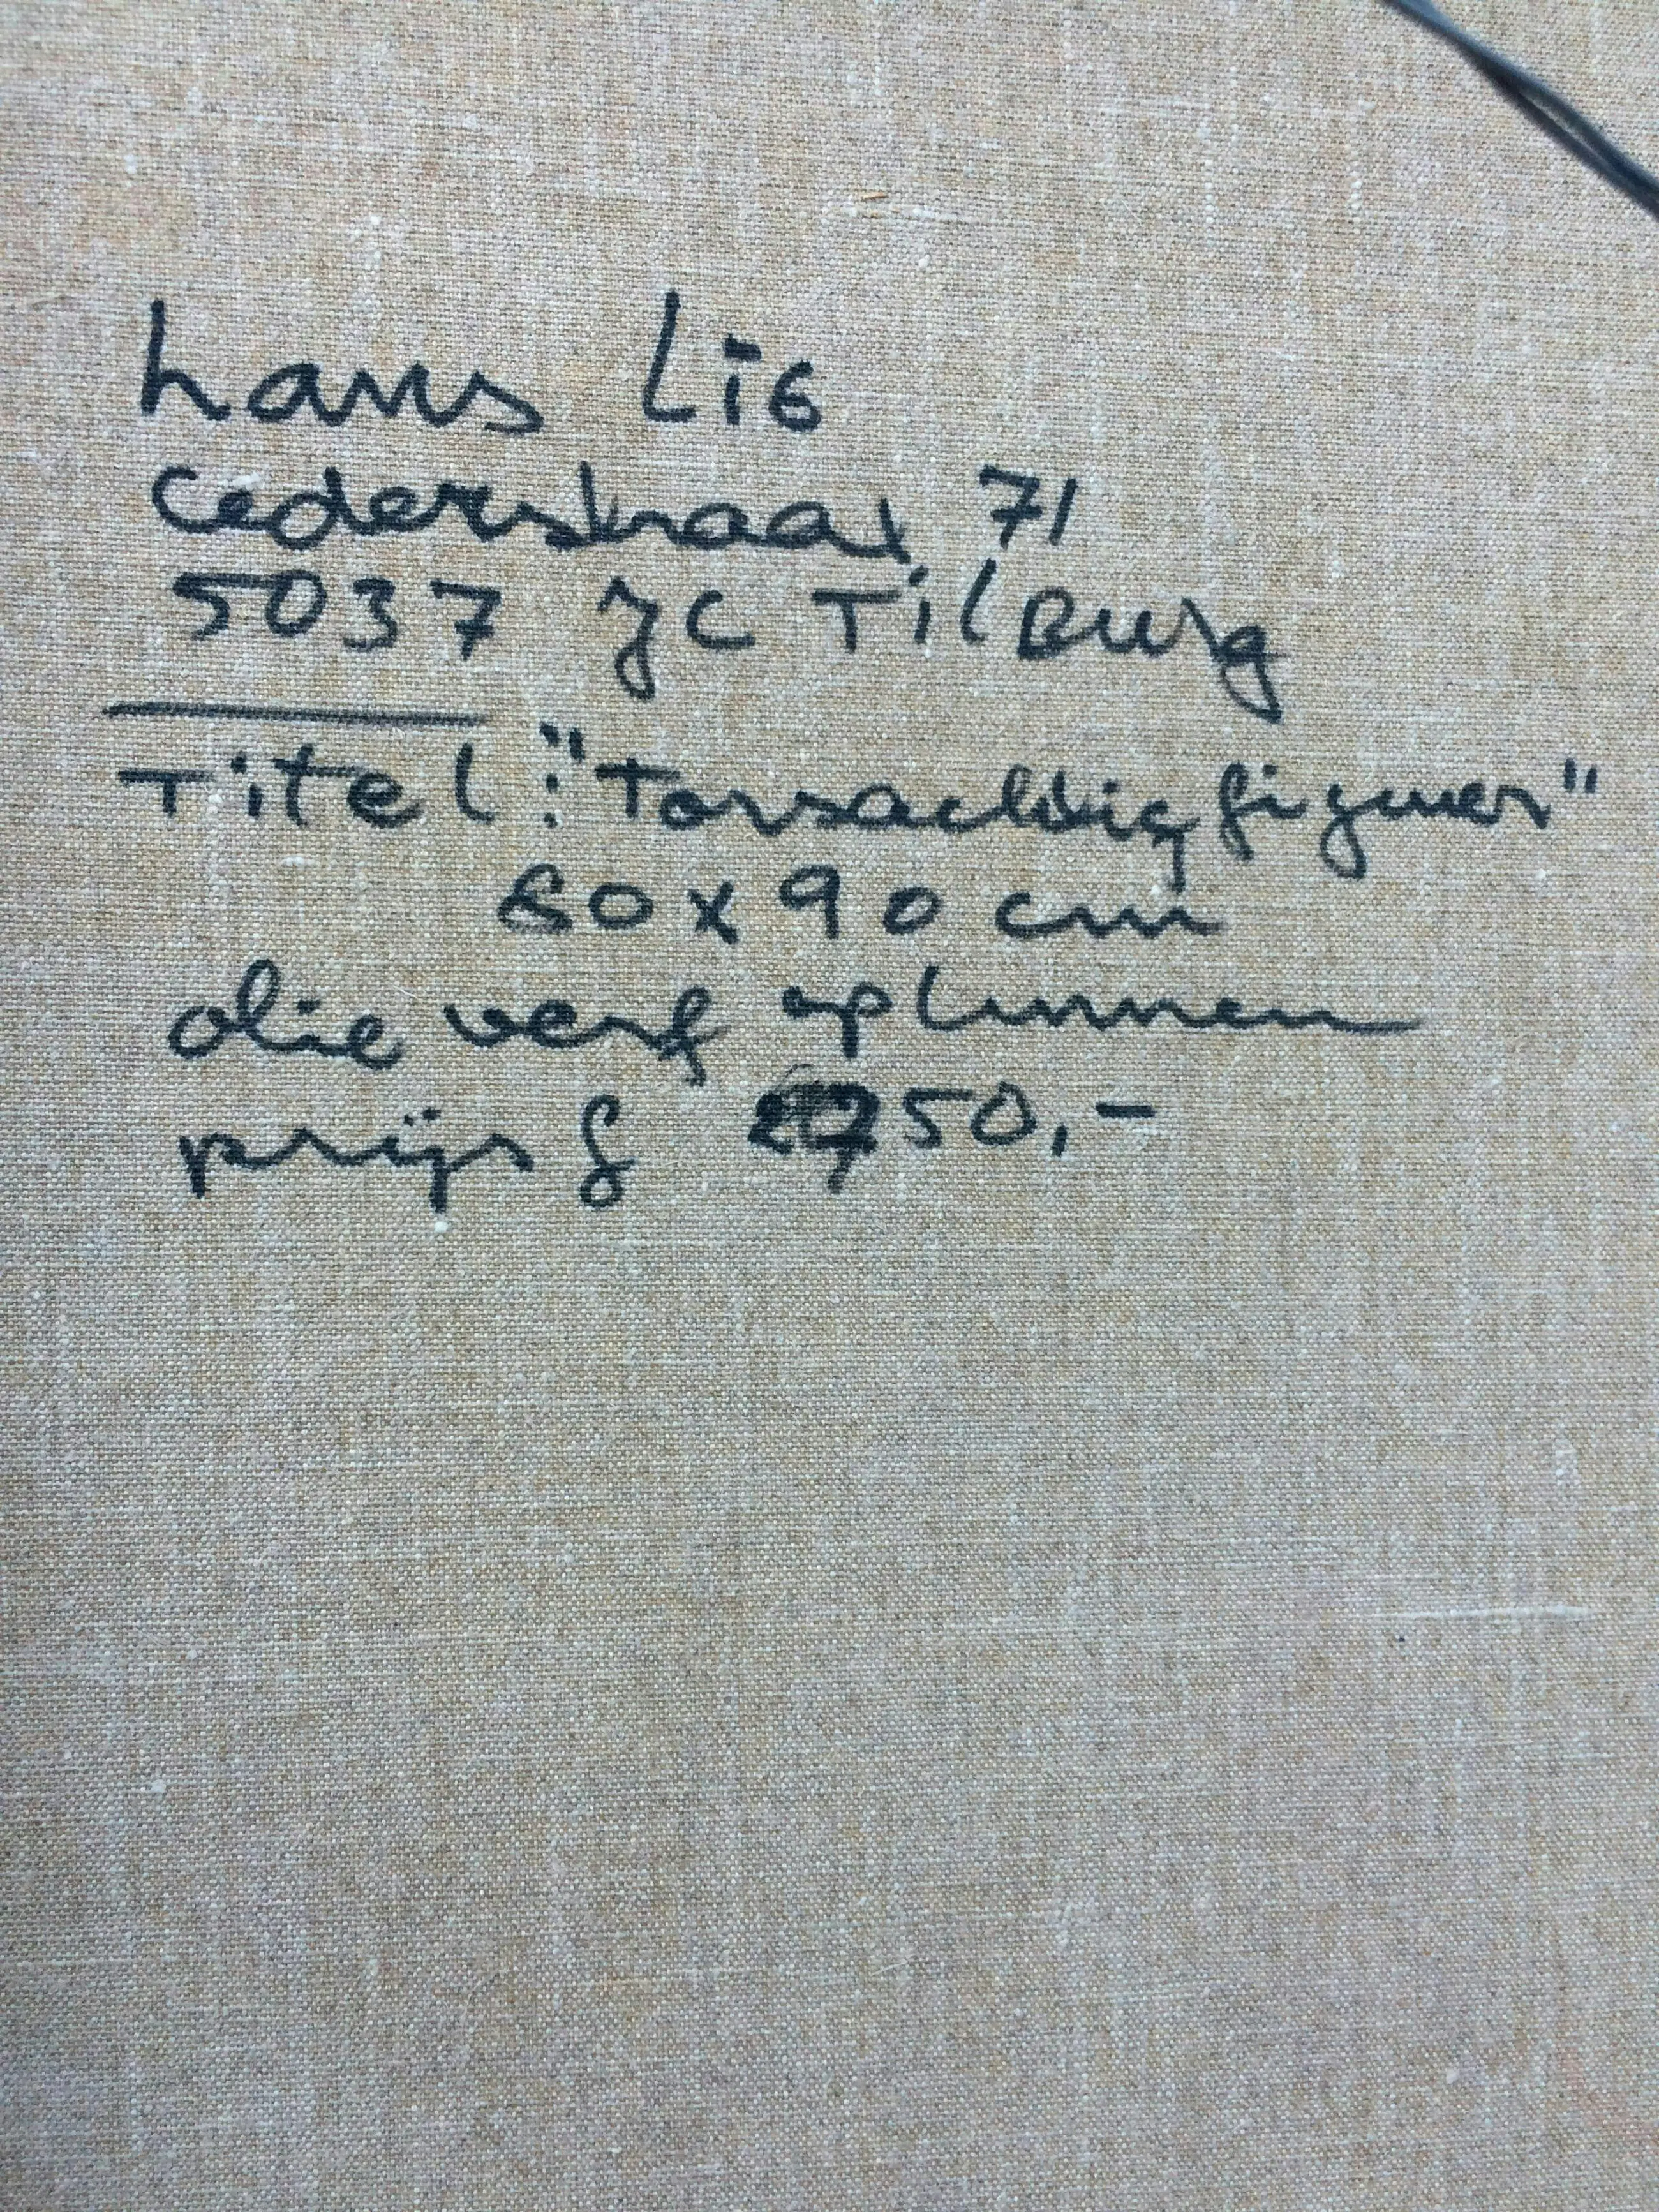 hans Lis
Cederstraat 71
5037 JC TilBurg
Titel: "Torsachtig figuur"
80 x 90 cm
olie verf op linnen
prijs f 2750,-